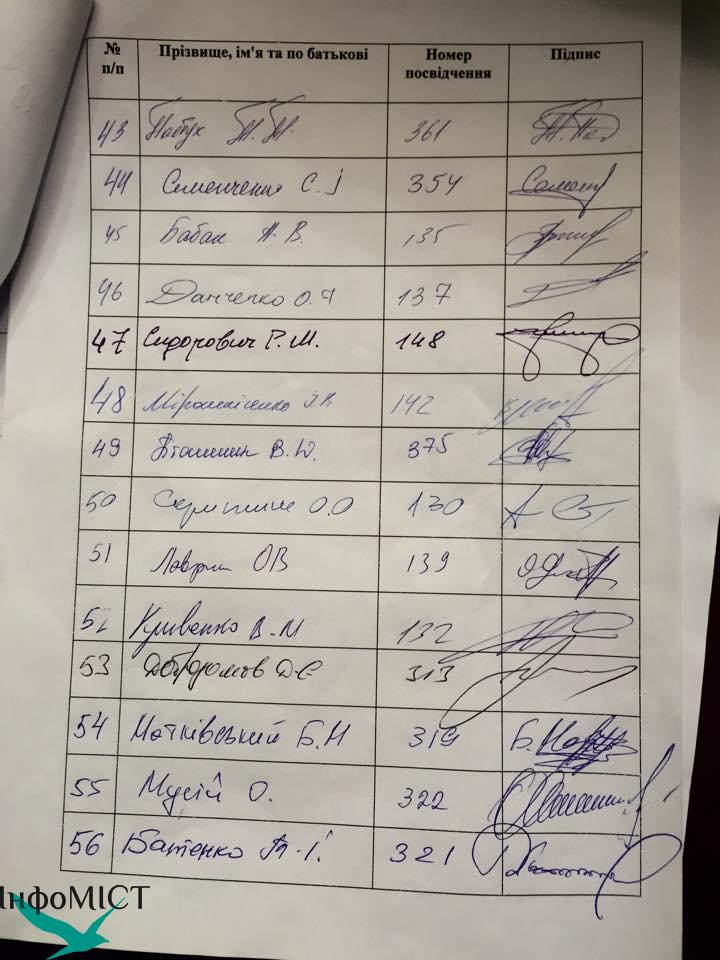 № п/п Прізвище, ім'я та по батькові Номер посвідчення Підпис
43 Пастух Т.Т. 361
44 Семенченко С. 354
45 Бабак А.В. 135
46 Данченко О.І 137
47 Сидорович Р.М. 148
48 Мірошніченко І В 142
49 Пташник В.Ю. 375
50 О.О 130
51 Лаврик ОВ 139
52 Кривенко В.М 132
53 Добродомов Д Є 313
54 Матківський Б.М 319
55 Мусій О. 322
56 Батенко Т.І. 321
ІнфоМІСТ